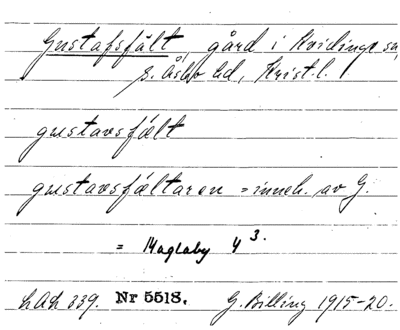 Gustafsfält, gård i Kvidinge sn,
S. Åsbo hd, Krist.l.
gustavsfält
gustavsfältaren = inneh. av G.
= Maglaby 4³.
LAL 339. Nr 5518. G. Billing 1915-20.